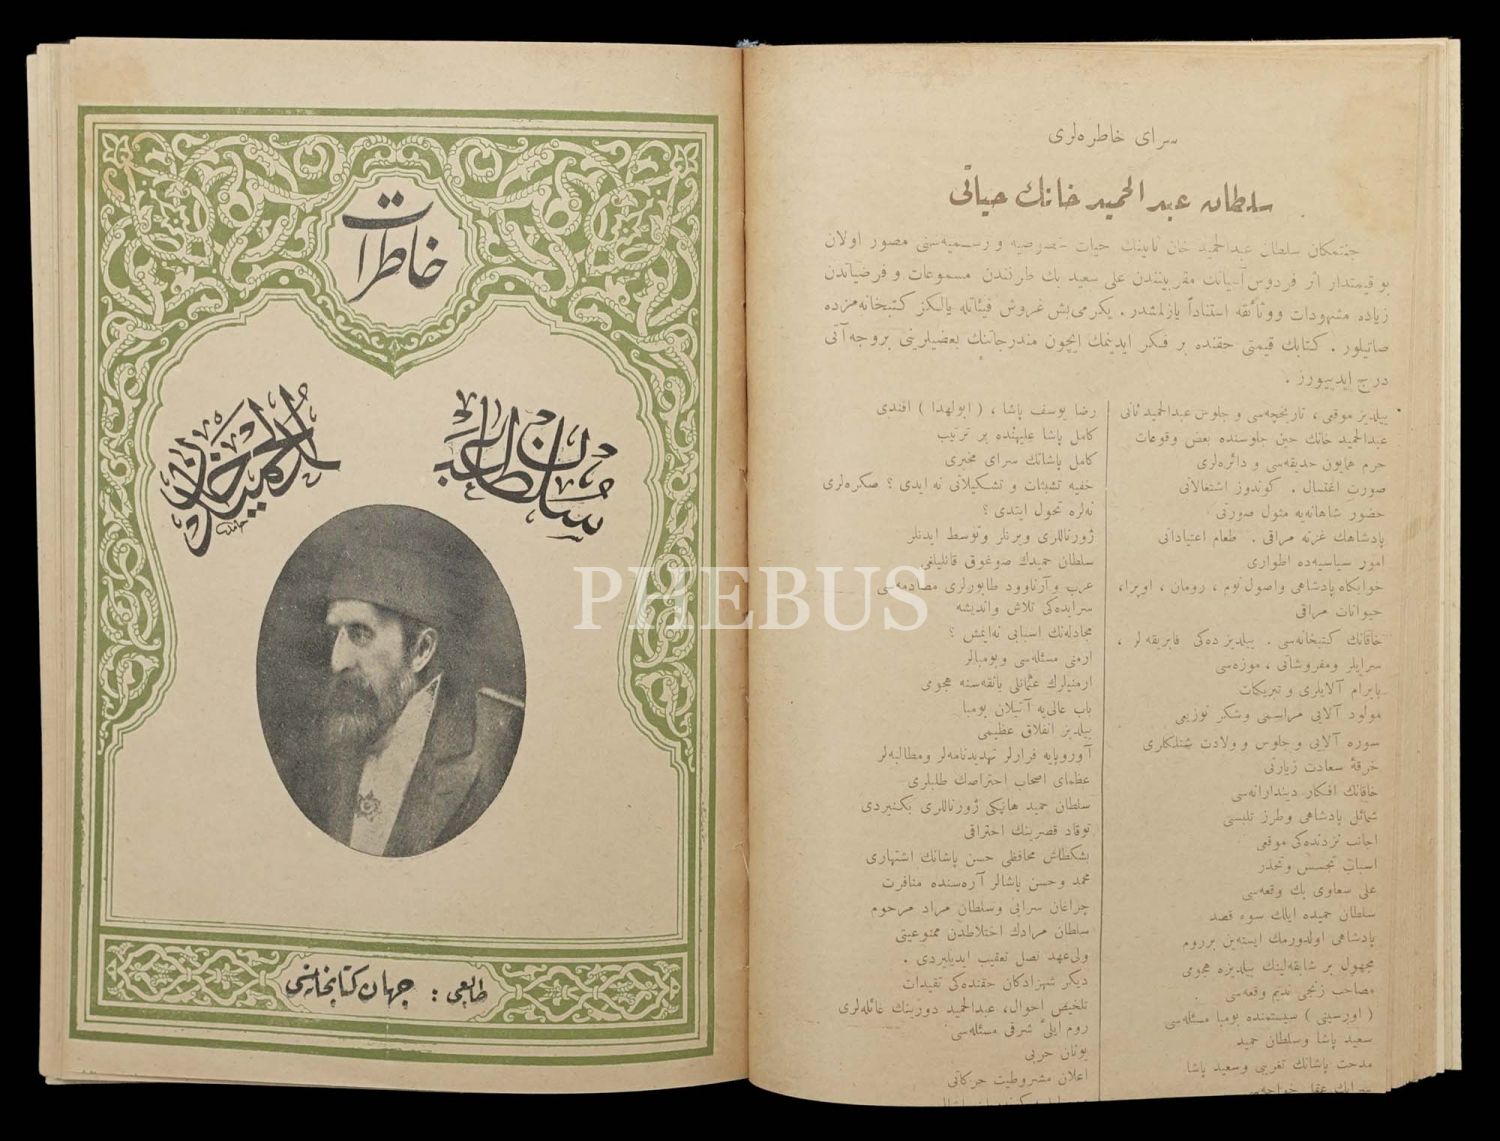 خاطرات
سلطان عبد
الحميد خان
حامد
طابعی : جهان کتابخانه‌سی
سرای خاطره‌لری
سلطان عبد الحمید خانك حیاتی
جنتمكان سلطان عبدالحمید خان ثانینك حیات خصوصیه و رسمیه‌سنی مصور اولان
بو قیمتدار اثر فردوس آشیانك مقربیندن علی سعید بك طرفندن مسموعات و فرضیاتدن
زیاده مشهودات ووثائقه استناداً یازلمشدر . یكرمی‌بش غروش فیئاتله یالكز كتبخانه‌مزده
صاتیلور . كتابك قیمتی حقنده بر فكر ایدینمك ایچون مندرجاتنك بعضیلرینی بروجه آتی
درج ایدییورز .
ییلدیز موقعی ، تاریخچه‌سی و جلوس عبدالحمید ثانی
عبدالحمید خانك حین جلوسنده بعض وقوعات
حرم همایون حدیقه‌سی و دائره‌لری
صورت اغتسال . كوندوز اشتغالاتی
حضور شاهانه‌یه مثول صورتی
پادشاهك غزته مراقی . طعام اعتیاداتی
امور سیاسیه‌ده اطواری
خوابكاه پادشاهی واصول نوم ، رومان ، اوپرا ،
حیوانات مراقی
خاقانك كتبخانه‌سی . ییلدیز ده‌كی فابریقه‌لر ،
سرایلر ومفروشاتی ، موزه‌سی
بایرام آلایلری و تبریكات
مولود آلایی مراسمی وشكر توزیعی
سوره آلایی و جلوس و ولادت شنلكلری
خرقهٔ سعادت زیارتی
خاقانك افكار دیندارانه‌سی
شمائلی پادشاهی وطرز تلبسی
اجانب نزدنده‌كی موقعی
اسباب تجسس وتحذر
علی سعاوی بك وقعه‌سی
سلطان حمیده ایلك سوء قصد
پادشاهی اولدورمك ایسته‌ین برروم
مجهول بر شابقه‌لینك ییلدیزه هجومی
مصاحب زنجی ندیم وقعه‌سی
( اورسینی ) سیستمنده بومبا مسئله‌سی
سعید پاشا وسلطان حمید
مدحت پاشانك تغریبی وسعید پاشا
رضا یوسف پاشا ، ( ابولهدا ) افندی
كامل پاشا علیهنده بر ترتیب
كامل پاشانك سرای مخبری
خفیه تشبثات و تشكیلاتی نه ایدی ؟ صكره‌لری
نه‌لره تحول ایتدی ؟
ژورناللری ویرنلر وتوسط ایدنلر
سلطان حمیدك صوغوق قانلیلغی
عرب و آرناوود طابورلری مصادمه‌سی
سرایده‌كی تلاش واندیشه
مجادله‌نك اسبابی نه‌ایمش ؟
ارمنی مسئله‌سی و بومبالر
ارمنیلرك عثمانلی بانقه‌سنه هجومی
باب عالی‌یه آتیلان بومبا
ییلدیز انفلاق عظیمی
آوروپایه فرارلر تهدیدنامه‌لر ومطالبه‌لر
عظمای اصحاب احتراصك طلبلری
سلطان حمید هانیكی ژورناللری بكنیردی
توقاد قصرینك احتراقی
بشكطاش محافظی حسن پاشانك اشتهاری
محمد وحسن پاشالر آره‌سنده منافرت
چراغان سرایی وسلطان مراد مرحوم
سلطان مرادك اختلاطدن ممنوعیتی
ولی‌عهد نصل تعقیب ایدیلیردی .
دیگر شهزادكان حقنده‌كی تقیدات
تلخیص احوال، عبدالحمید دورینك غائله‌لری
روم ایلیٔ شرقی مسئله‌سی
یونان حربی
اعلان مشروطیت حركاتی
PHEBUS